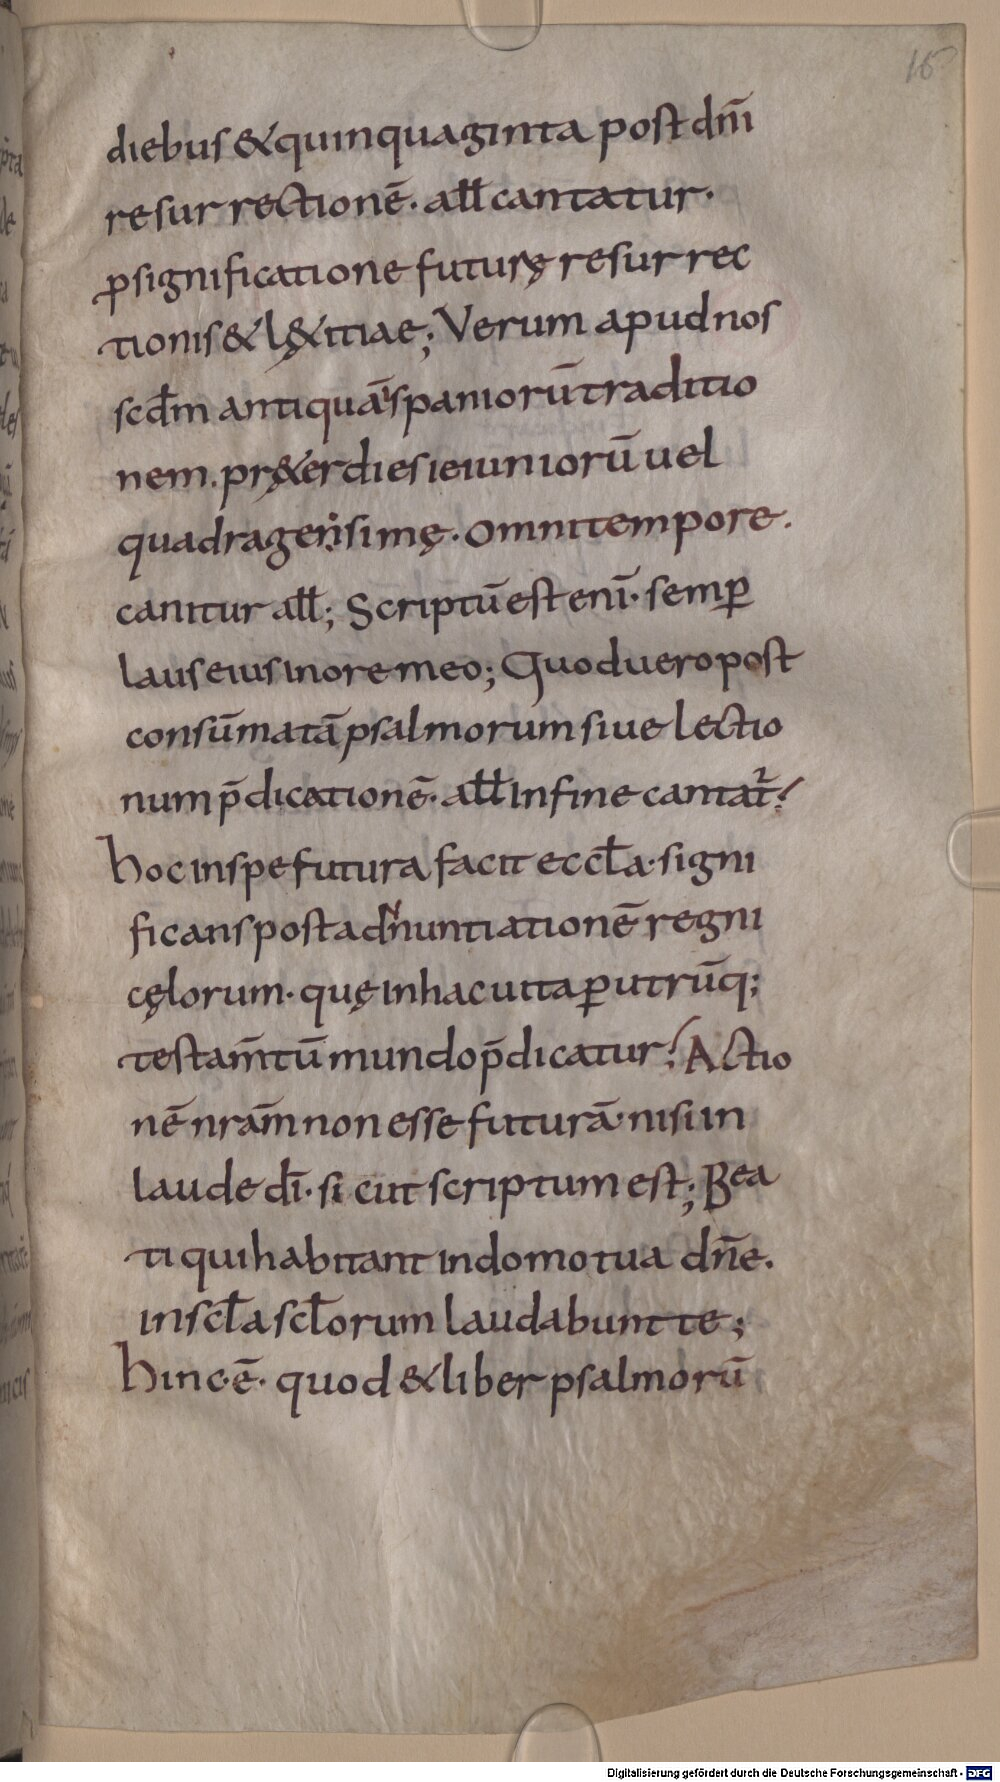 16
diebus & quinquaginta post dn̄i
resurrectionē. all̄ cantatur.
ꝓ significatione futurę resurrec
tionis & l&itiae; Verum apud nos
scd̄m antiquā ispaniorū traditio
nem. pr&er dies ieiuniorū uel
quadragensimę. omni tempore.
canitur all̄; Scriptū est enī. semꝑ
laus eius in ore meo; Quod uero post
consūmatā psalmorum siue lectio
num p̄dicationē. all̄ In fine cantat᷑;
hoc in spe futura facit eccl̄a. signi
ficans post adnnuntiationē regni
cęlorum. quę in hac uita ꝑ utrūq;
testam̄tū mundo p̄dicatur; Actio
nē nram̄ non esse futurā. nisi in
laude dī. sicut scriptum est; Bea
ti qui habitant in domo tua dn̄e.
in scl̄a scl̄orum laudabunt te;
hinc ē. quod & liber psalmorū
Digitalisierung gefördert durch die Deutsche Forschungsgemeinschaft - DFG